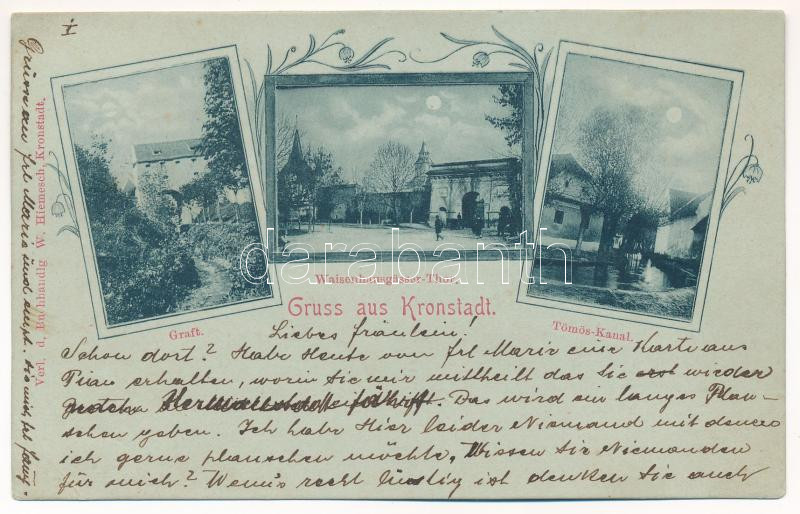 I
Waisenhausgässer-Thor.
Gruss aus Kronstadt.
Graft.
Tömös-Kanal.
Verl. d. Buchhandlg W. Hiemesch, Kronstadt.
darabanth
Liebes Fräulein!
Schon dort? Habe Heute von Frl Marie eine Karte aus
erhalten, worin Sie mir mittheilt das Sie erst wieder
nach Hermannstadt. Das wird ein langes Plau-
schen geben. Ich habe Hier leider Niemand mit denen
ich gerne plauschen möchte, Wissen Sie Niemanden
für mich? Wenn's recht lustig ist denken Sie auch
Grüsse an Frl Maria und